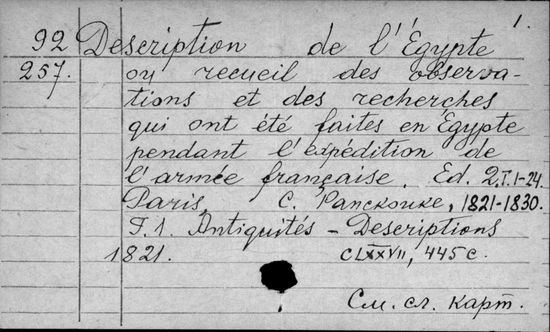 1.
92 Description de l'Égypte
257. ou recueil des observa-
tions et des recherches
qui ont été faites en Égypte
pendant l'expédition de
l'armée française. Ed. 2. T. 1-24.
Paris, C. Panckouke, 1821-1830.
T. 1. Antiquités - Descriptions
1821. CLXXVII, 445 c.
См. сл. карт.